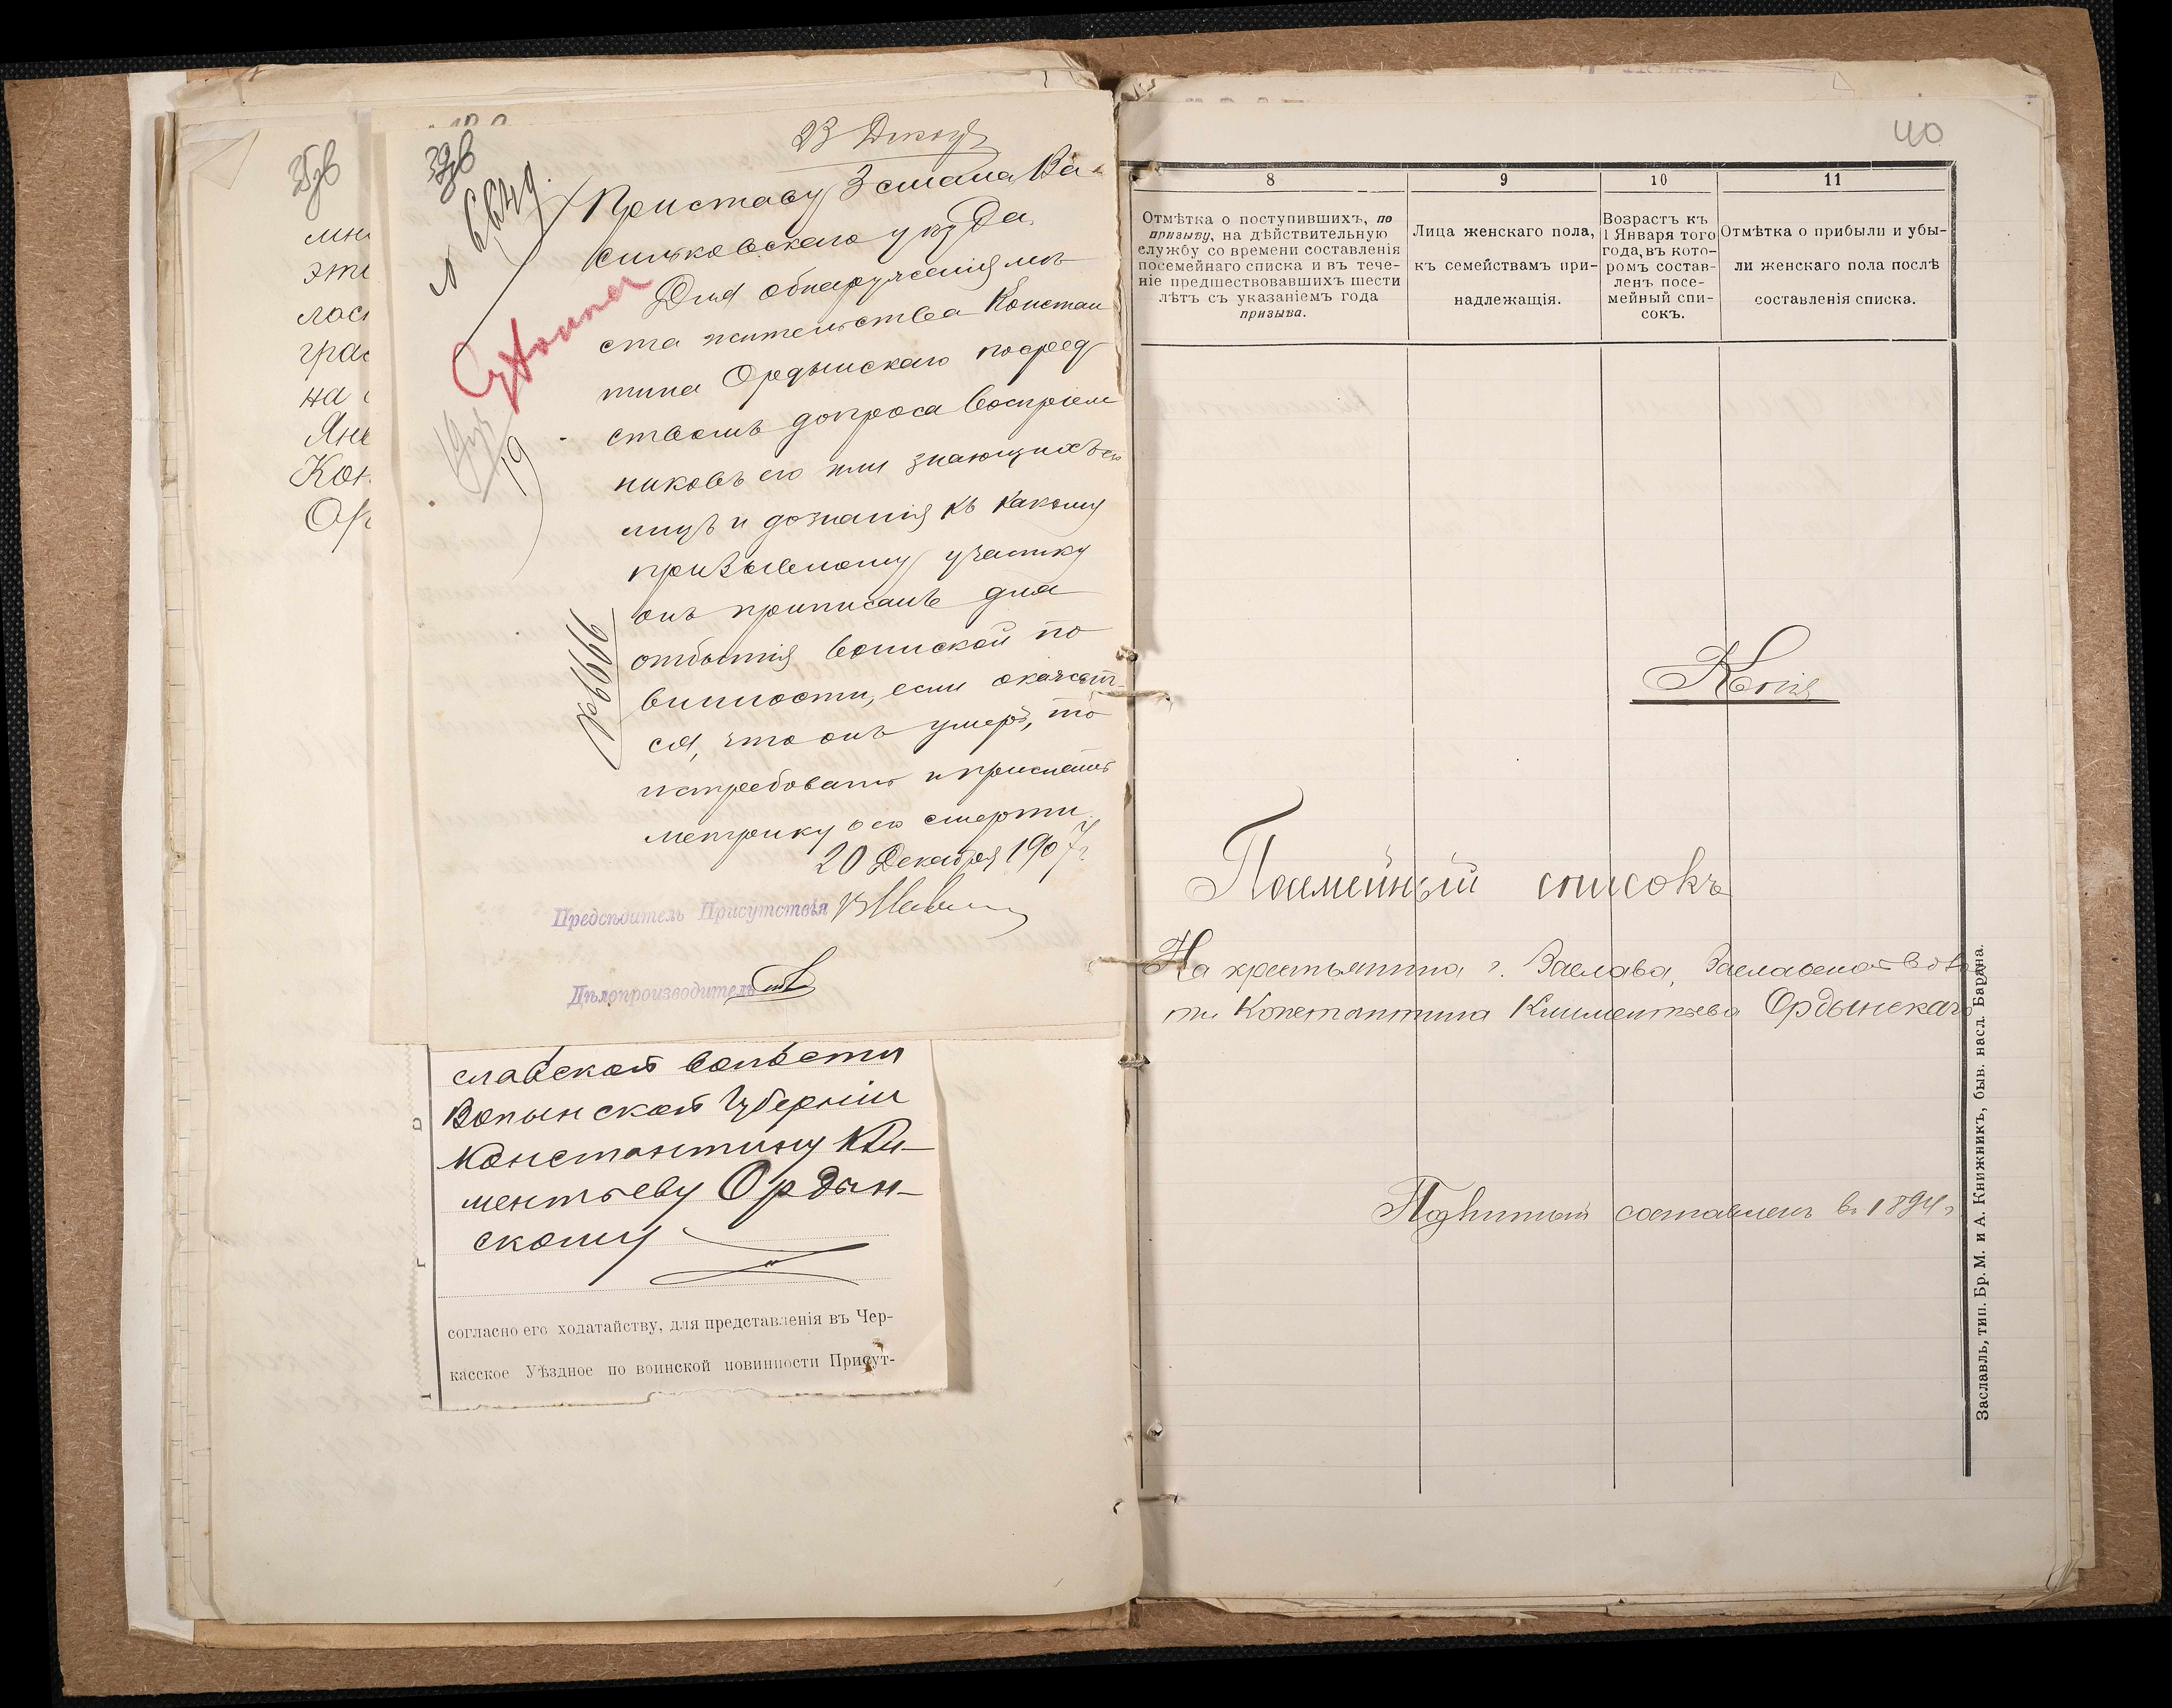 мн
эти
лос
гра
на
Яне
Кон
Ор
23 Декаб
Приставу 3 стана Ва-
сильковскаго уѣзда.
Для обнаруженія мѣ-
ста жительства Констан
тина Ордынскаго посред
ствомъ допроса воспріем
никовъ его или знающихъ его
лицъ и дознанія къ какому
призывному участку
онъ приписанъ для
отбытія воинской по
винности, если окажет-
ся, что онъ умеръ, то
истребовать и прислать
метрику о его смерти
20 Декабря 1907 г.
Предсѣдатель Присутствія
Дѣлопроизводитель
славской волости
Волынской губерніи
Константину Кли-
ментьеву Ордын-
скому
согласно его ходатайству, для представленія въ Чер-
касское Уѣздное по воинской повинности Присут-
40
8 9 10 11
Отмѣтка о поступившихъ, по
призыву, на дѣйствительную
службу со времени составленія
посемейнаго списка и въ тече-
ніе предшествовавшихъ шести
лѣтъ съ указаніемъ года
призыва.
Лица женскаго пола,
къ семействамъ при-
надлежащія.
Возрастъ къ
1 Января того
года, въ кото-
ромъ состав-
ленъ посе-
мейный спи-
сокъ.
Отмѣтка о прибыли и убы-
ли женскаго пола послѣ
составленія списка.
Копія
Посемейный списокъ
На крестьянина г. Заслава, Заславской воло
сти Константина Климентьева Ордынскаго
составленъ въ 1894 г
Заславль, тип. Бр. М. и А. Книжникъ, быв. насл. Бардна.